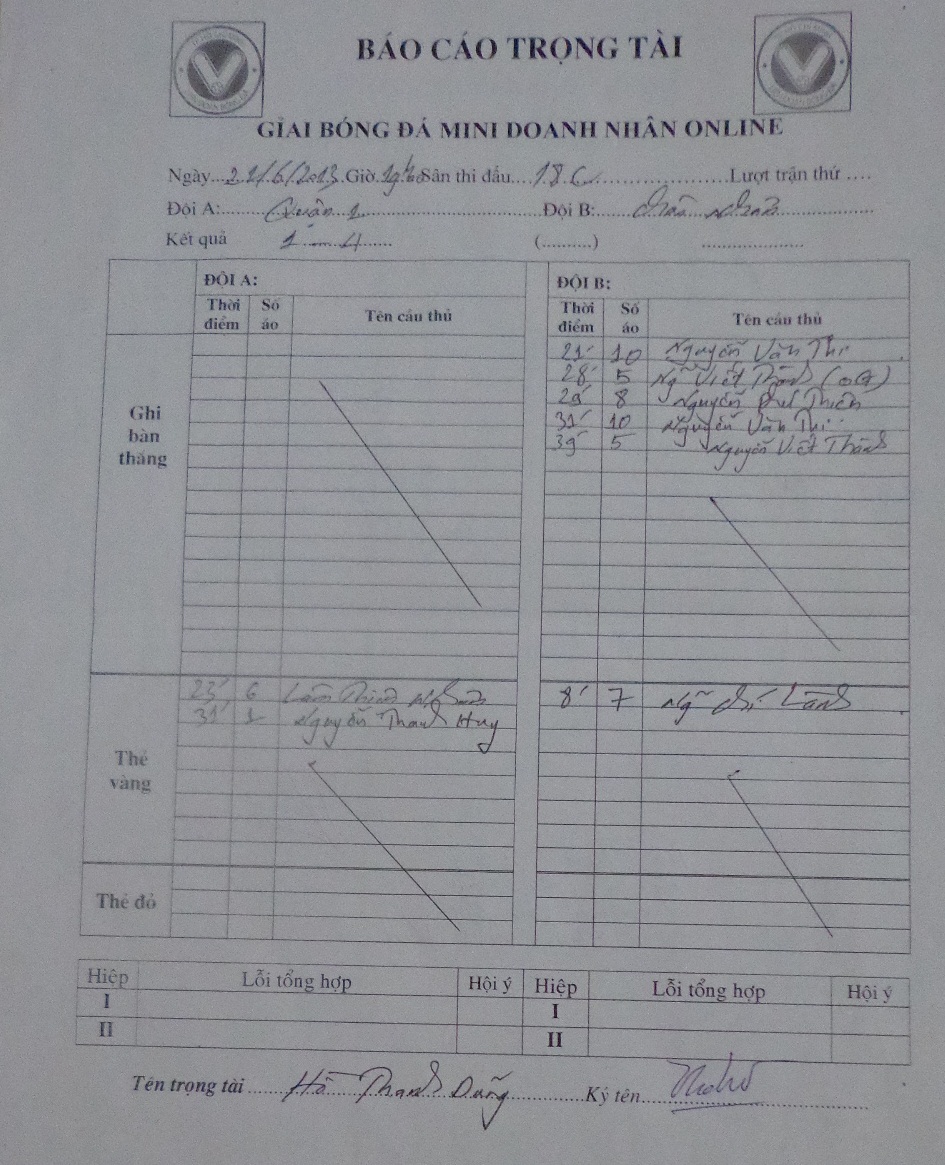 BÁO CÁO TRỌNG TÀI
GIẢI BÓNG ĐÁ MINI DOANH NHÂN ONLINE
Ngày...21/6/2013.Giờ.19h00Sân thi đấu....18C...........................Lượt trận thứ ....
Đội A:........Quận 1...............................Đội B:......
Kết quả 1.....4...... (..........) ....................
ĐỘI A: ĐỘI B:
Thời điểm Số áo Tên cầu thủ Thời điểm Số áo Tên cầu thủ
Ghi bàn thắng
21' 10 Nguyễn Văn Thi
28' 5 Ng~ Viết Thành (OG)
29' 8 Nguyễn Thiên
31' 10 Nguyễn Văn Thi
39' 5 Nguyễn Viết Thành
Thẻ vàng
23' 6 Lâm 8' 7 Ng~ Chí Lành
31' 1 Nguyễn Thanh Huy
Thẻ đỏ
Hiệp Lỗi tổng hợp Hội ý Hiệp Lỗi tổng hợp Hội ý
I I
II II
Tên trọng tài ......Hồ Thanh Dũng............Ký tên